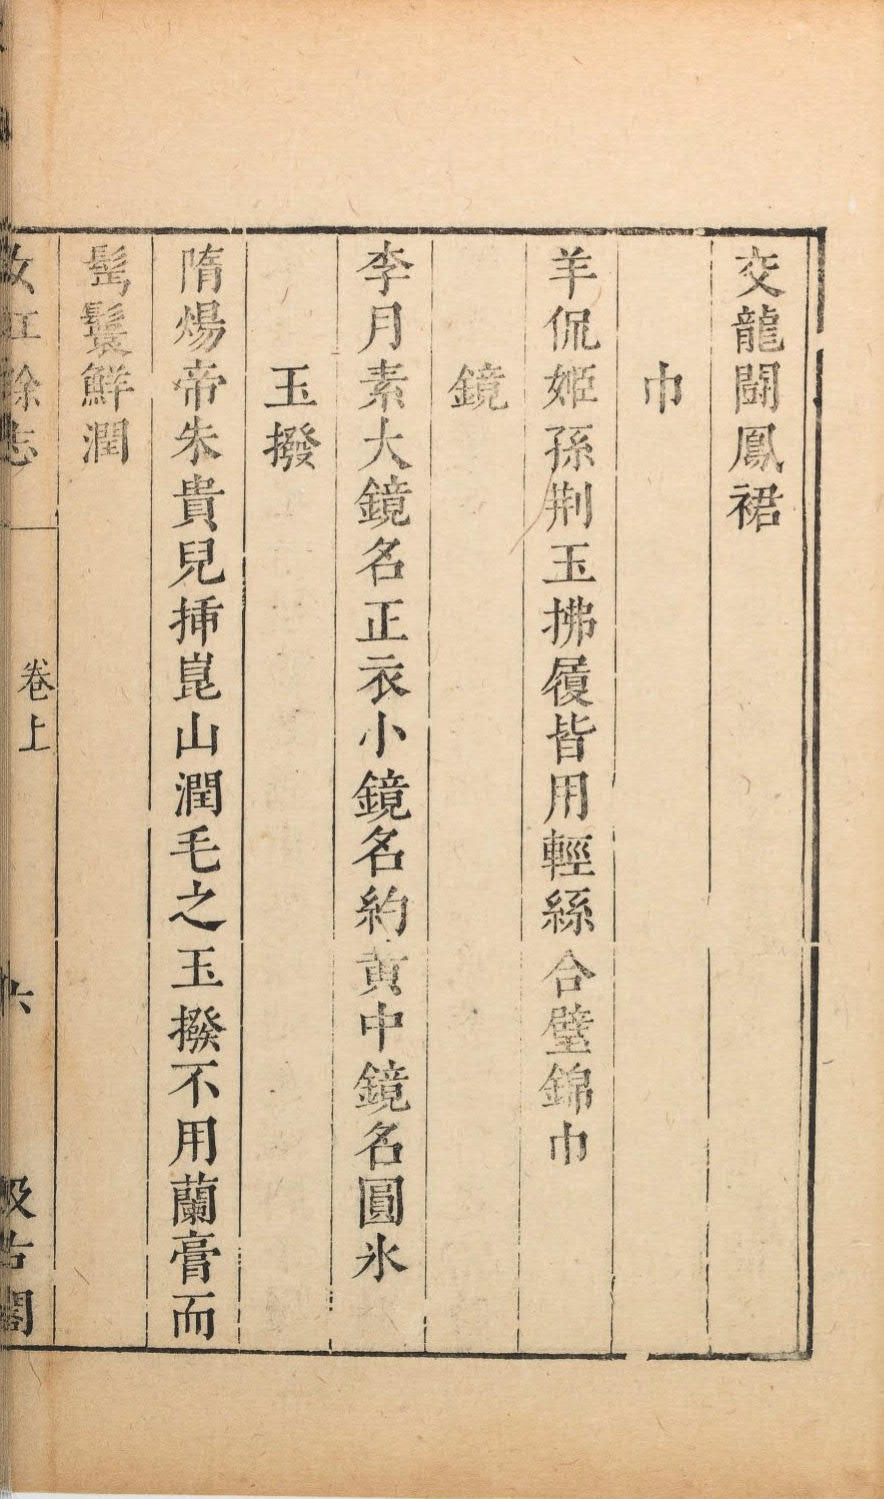 交龍鬭鳳裙
巾
羊侃姬孫荆玉拂履皆用輕絲合璧錦巾
鏡
李月素大鏡名正衣小鏡名約黄中鏡名圓氷
玉撥
隋煬帝朱貴兒揷崑山潤毛之玉撥不用蘭膏而
髩鬟鮮潤
女紅餘志
卷上
六
汲古閣